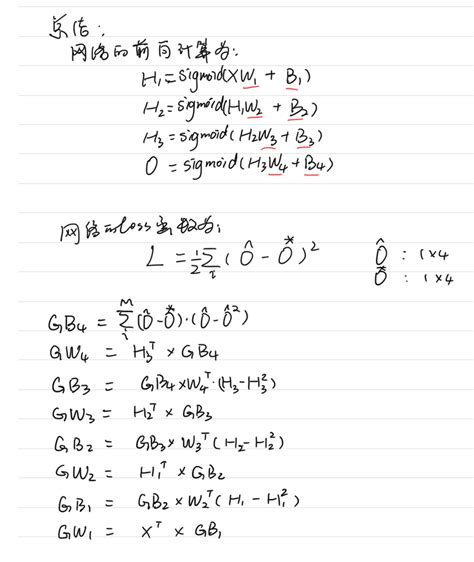 总结:
网络的前向计算为:
H₁=sigmoid(XW₁ + B₁)
H₂=sigmoid(H₁W₂ + B₂)
H₃=sigmoid(H₂W₃+B₃)
O =sigmoid(H₃W₄+B₄)
网络的Loss函数为:
L = ½∑ᵢ(Ô - O*)²
Ô : 1×4
O* : 1×4
GB₄ = ∑ᵢᴹ(Ô-O*)·(Ô-Ô²)
GW₄ = H₃ᵀ × GB₄
GB₃ = GB₄×W₄ᵀ·(H₃-H₃²)
GW₃ = H₂ᵀ × GB₃
GB₂ = GB₃×W₃ᵀ(H₂-H₂²)
GW₂ = H₁ᵀ × GB₂
GB₁ = GB₂×W₂ᵀ(H₁-H₁²)
GW₁ = Xᵀ × GB₁